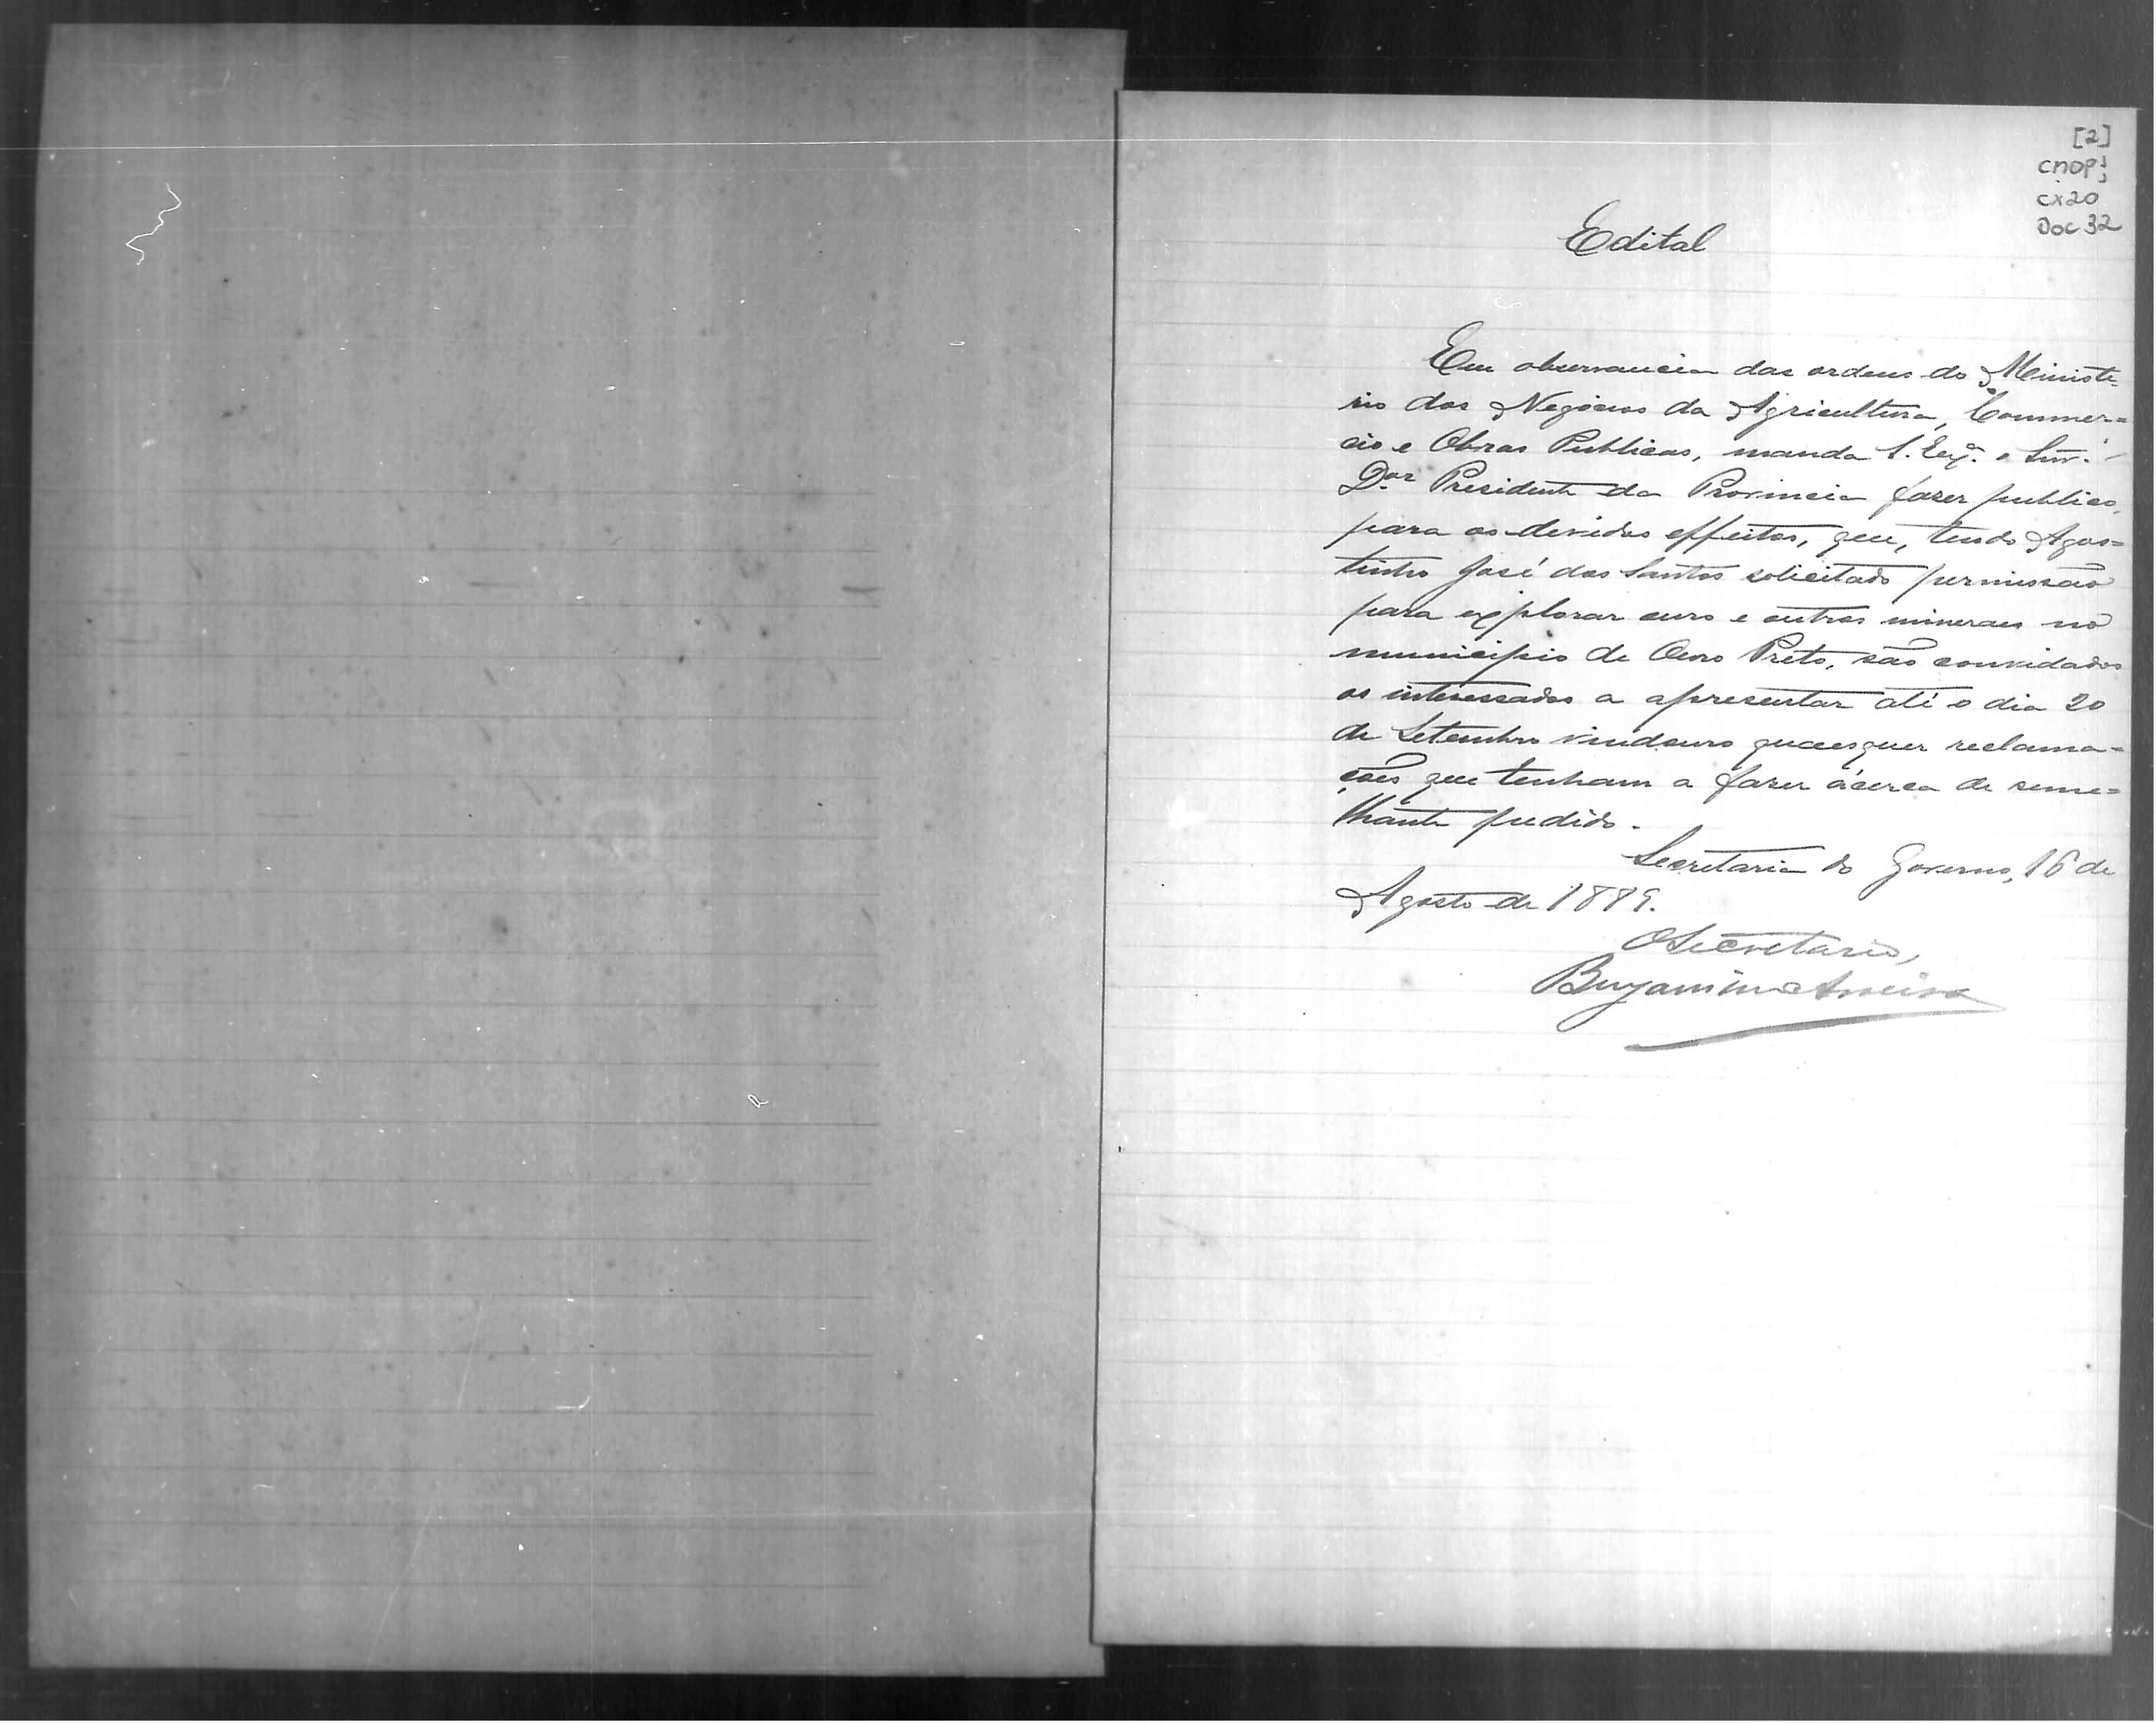 [2]
CMOP;
CX20
DOC 32
Edital
Em observancia das ordens do Ministe-
rio dos Negocios da Agricultura, Commer=
cio e Obras Publicas, manda S. Exª. o Snr.
Dor. Presidente da Provincia fazer publico,
para os devidos effeitos, que, tendo Agos=
tinho José dos Santos solicitado permissão
para explorar ouro e outros mineraes no
municipio de Ouro Preto, são convidados
os interessados a apresentar até o dia 20
de Setembro vindouro quaesquer reclama-
ções que tenham a fazer ácerca de seme=
lhante pedido.
Secretaria do Governo, 16 de
Agosto de 1889.
O Secretario,